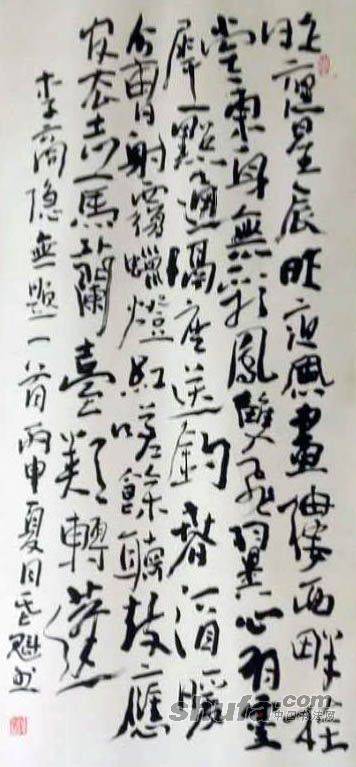 昨夜星辰昨夜風畫樓西畔桂
堂東身無彩鳳雙飛翼心有靈
犀一點通隔座送鉤春酒暖
分曹射覆蠟燈紅嗟餘聽鼓應
官去走馬蘭臺類轉蓬
李商隐無題一首丙申夏月魁书
shufa.com
中国书法网